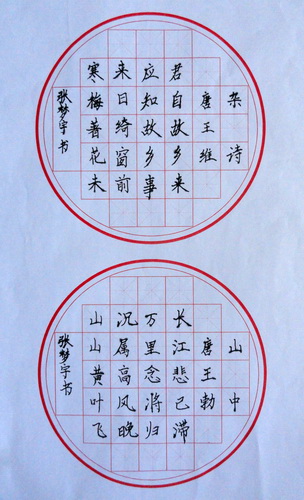 杂诗
唐王维
君自故乡来
应知故乡事
来日绮窗前
寒梅著花未
张梦宇书
山中
唐王勃
长江悲已滞
万里念将归
况属高风晚
山山黄叶飞
张梦宇书